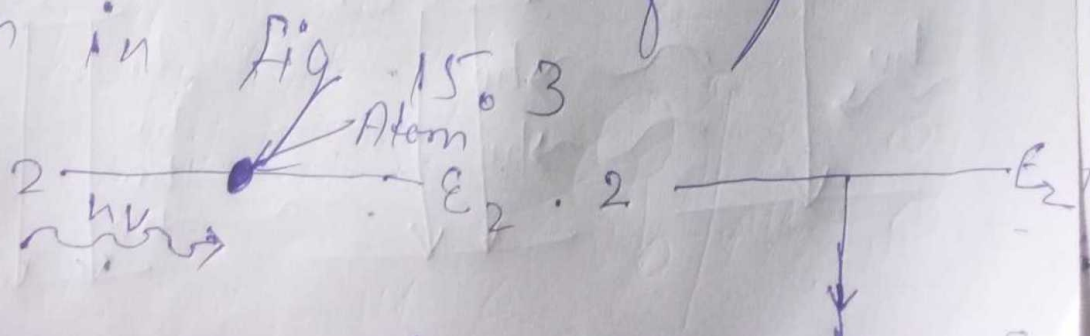 in fig 15.3
Atom
2 E2 . 2 E2
hν